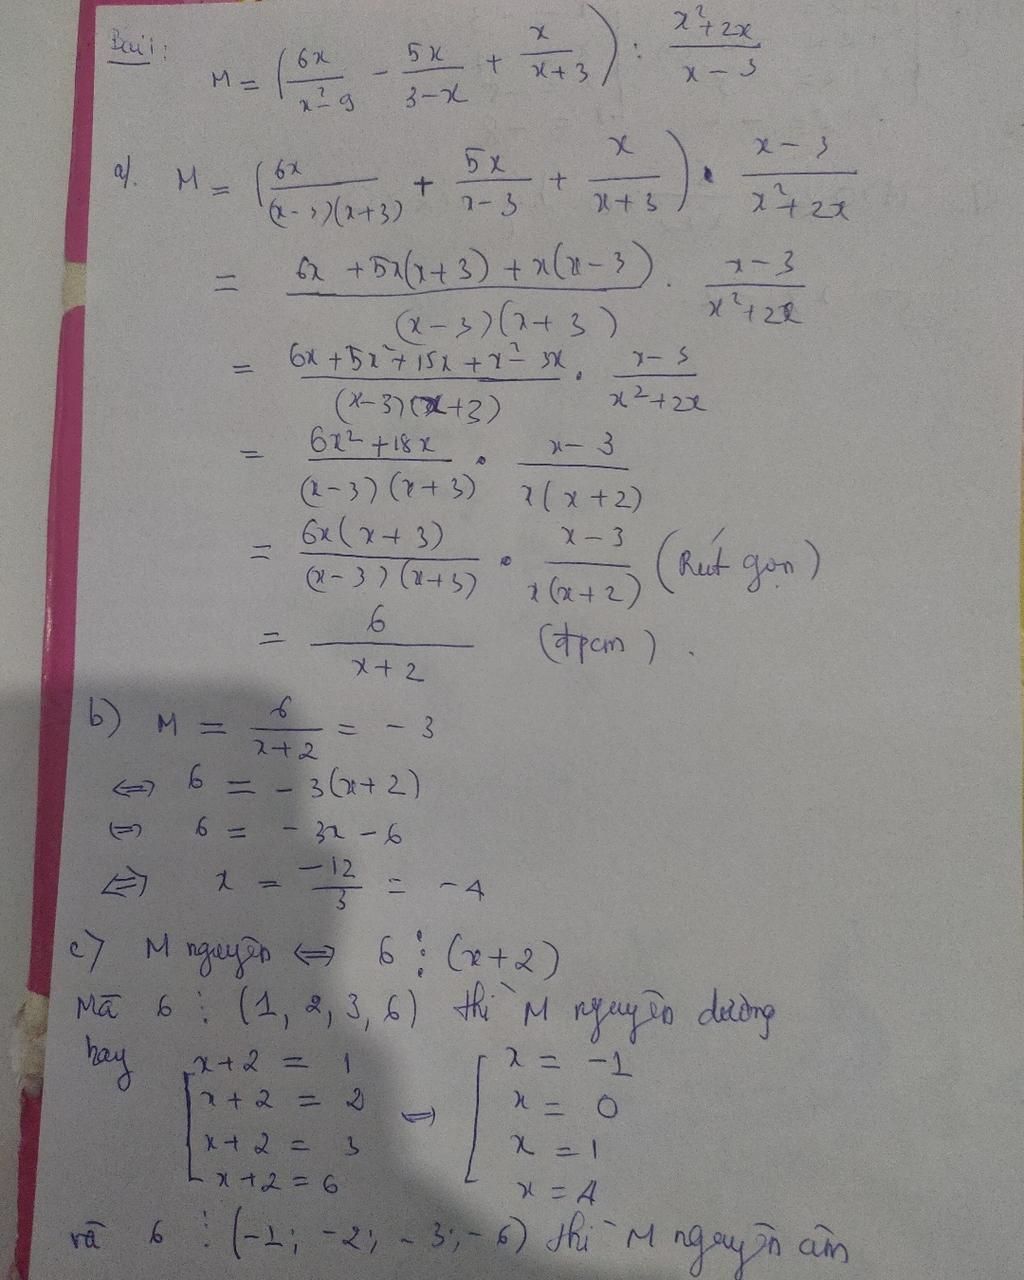 Bài 1:
M = (6x/(x²-9) - 5x/(3-x) + x/(x+3)) : (x²+2x)/(x-3)
a). M = (6x/((x-3)(x+3)) + 5x/(x-3) + x/(x+3)) . (x-3)/(x²+2x)
= (6x + 5x(x+3) + x(x-3))/((x-3)(x+3)) . (x-3)/(x²+2x)
= (6x + 5x² + 15x + x² - 3x)/((x-3)(x+3)) . (x-3)/(x²+2x)
= (6x² + 18x)/((x-3)(x+3)) . (x-3)/(x(x+2))
= (6x(x+3))/((x-3)(x+3)) . (x-3)/(x(x+2)) (Rút gọn)
= 6/(x+2) (đpcm).
b) M = 6/(x+2) = -3
⇔ 6 = -3(x+2)
⇔ 6 = -3x - 6
⇔ x = -12/3 = -4
c) M nguyên ⇔ 6 ⋮ (x+2)
Mà 6 ⋮ (1, 2, 3, 6) thì M nguyên dương
hay [x+2 = 1 ⇔ [x = -1
x+2 = 2 x = 0
x+2 = 3 x = 1
x+2 = 6 x = 4
và 6 ⋮ (-1; -2; -3; -6) thì M nguyên âm